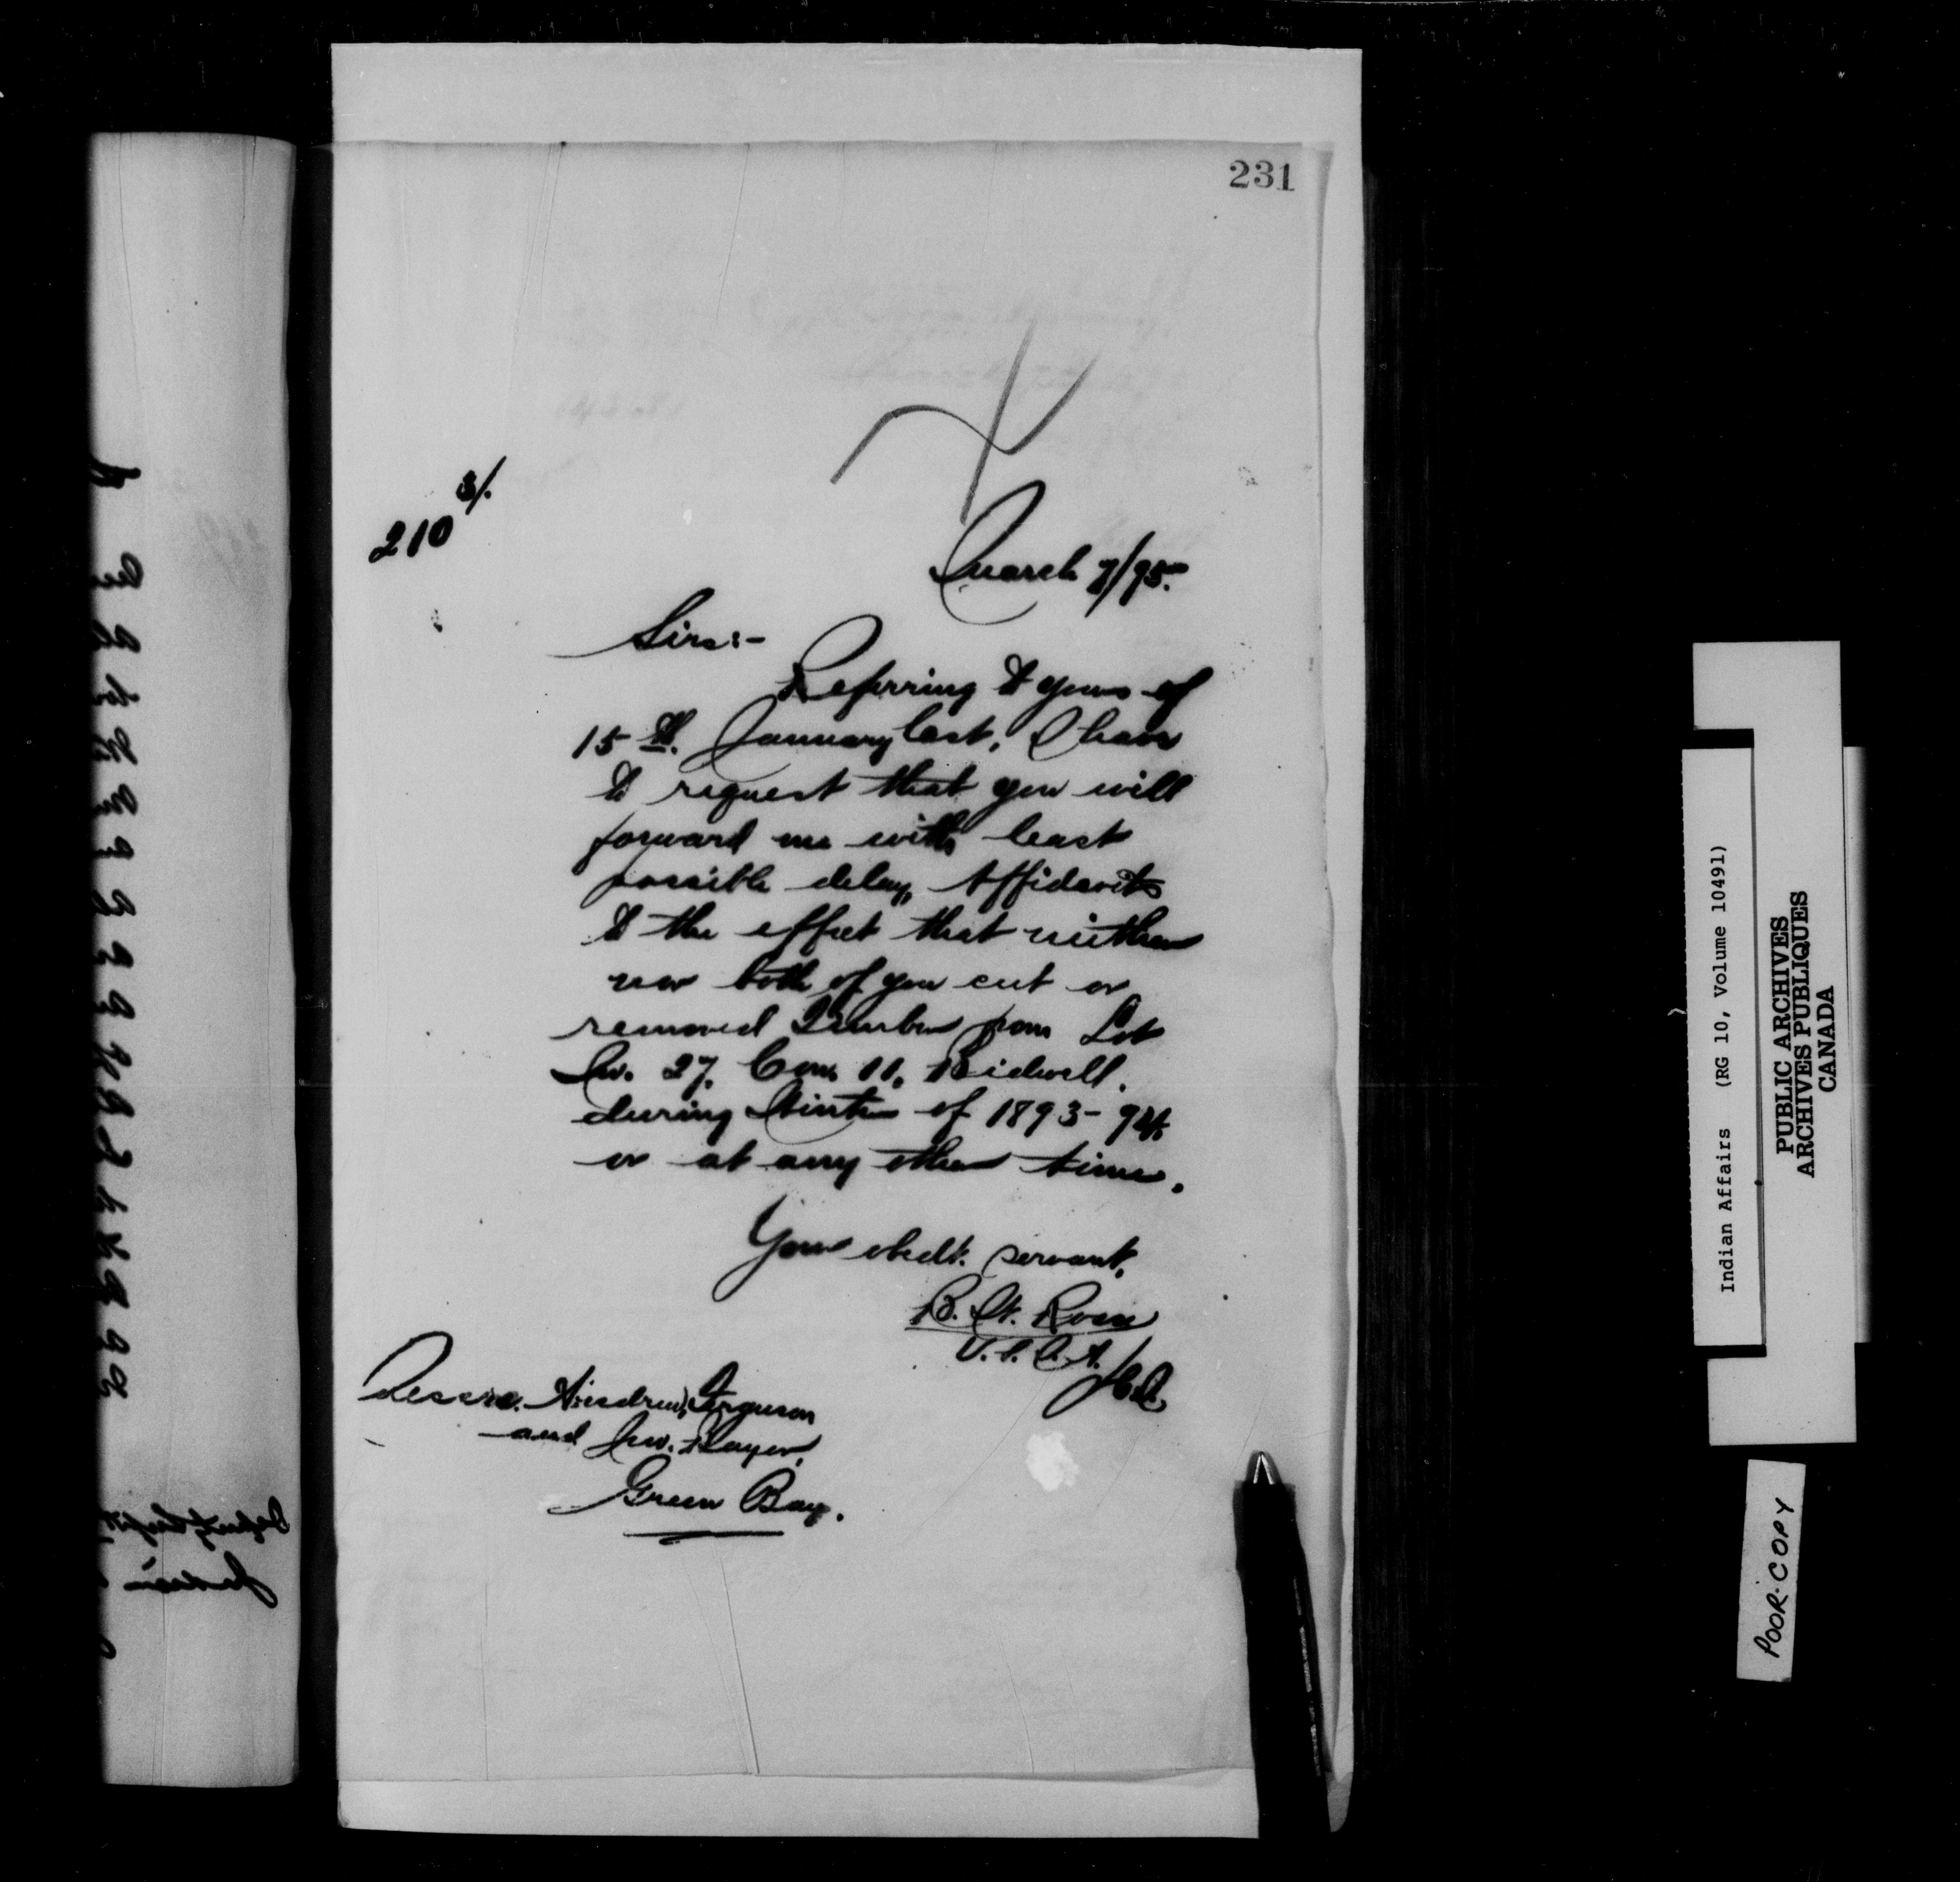 231
210 3/.
March 7/95.
Sirs:-
Referring to yours of
15th. January last, I have
to request that you will
forward me with least
possible delay, Affidavits
to the effect that neither
nor both of you cut or
removed Timber from Lot
No. 27, Con. 11, Bidwell,
during Winter of 1893-94,
or at any other time.
Your obedt. servant,
B. W. Ross
V. S. I. A.
Messrs. Andrew Ferguson
and Player,
Green Bay.
Indian Affairs (RG 10, Volume 10491)
PUBLIC ARCHIVES
ARCHIVES PUBLIQUES
CANADA
POOR COPY